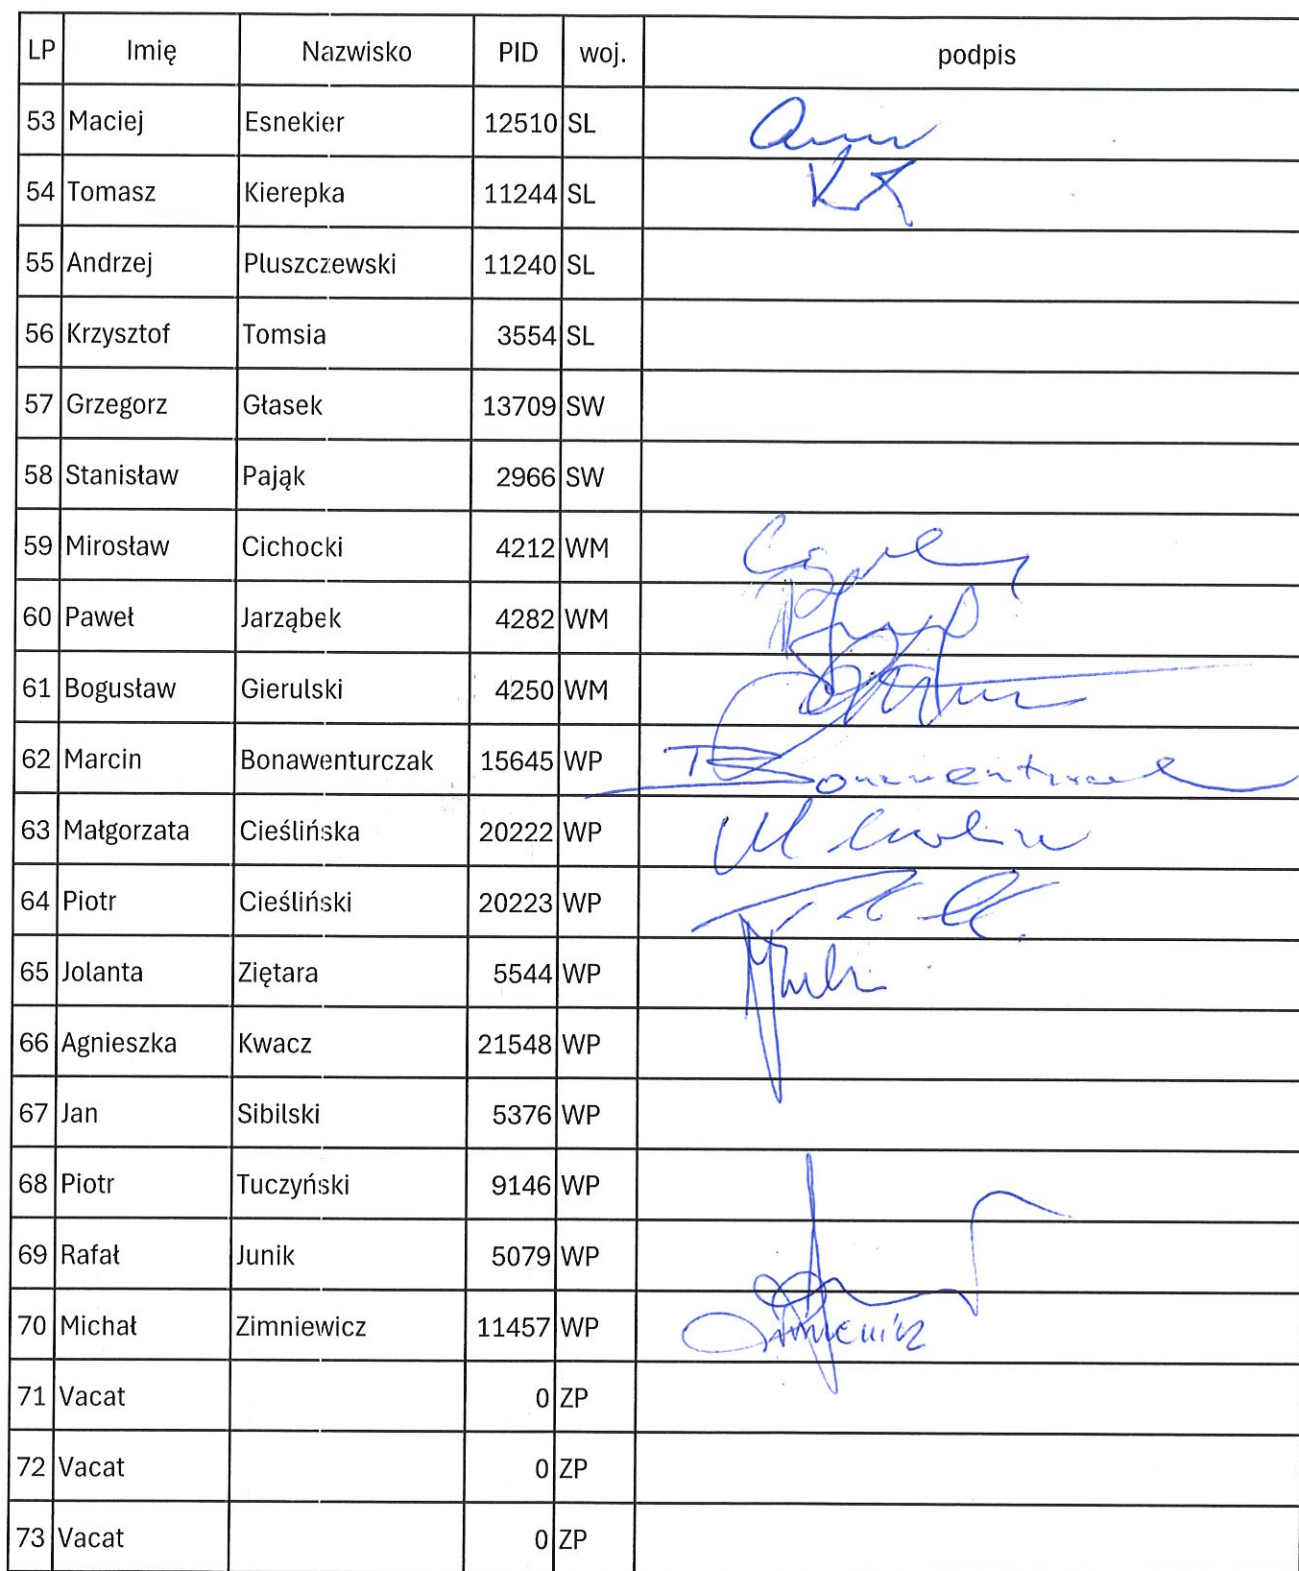 LP Imię Nazwisko PID woj. podpis
53 Maciej Esnekier 12510 SL
54 Tomasz Kierepka 11244 SL
55 Andrzej Pluszczewski 11240 SL
56 Krzysztof Tomsia 3554 SL
57 Grzegorz Głasek 13709 SW
58 Stanisław Pająk 2966 SW
59 Mirosław Cichocki 4212 WM
60 Paweł Jarząbek 4282 WM
61 Bogusław Gierulski 4250 WM
62 Marcin Bonawenturczak 15645 WP
63 Małgorzata Cieślińska 20222 WP
64 Piotr Cieśliński 20223 WP
65 Jolanta Ziętara 5544 WP
66 Agnieszka Kwacz 21548 WP
67 Jan Sibilski 5376 WP
68 Piotr Tuczyński 9146 WP
69 Rafał Junik 5079 WP
70 Michał Zimniewicz 11457 WP
71 Vacat 0 ZP
72 Vacat 0 ZP
73 Vacat 0 ZP